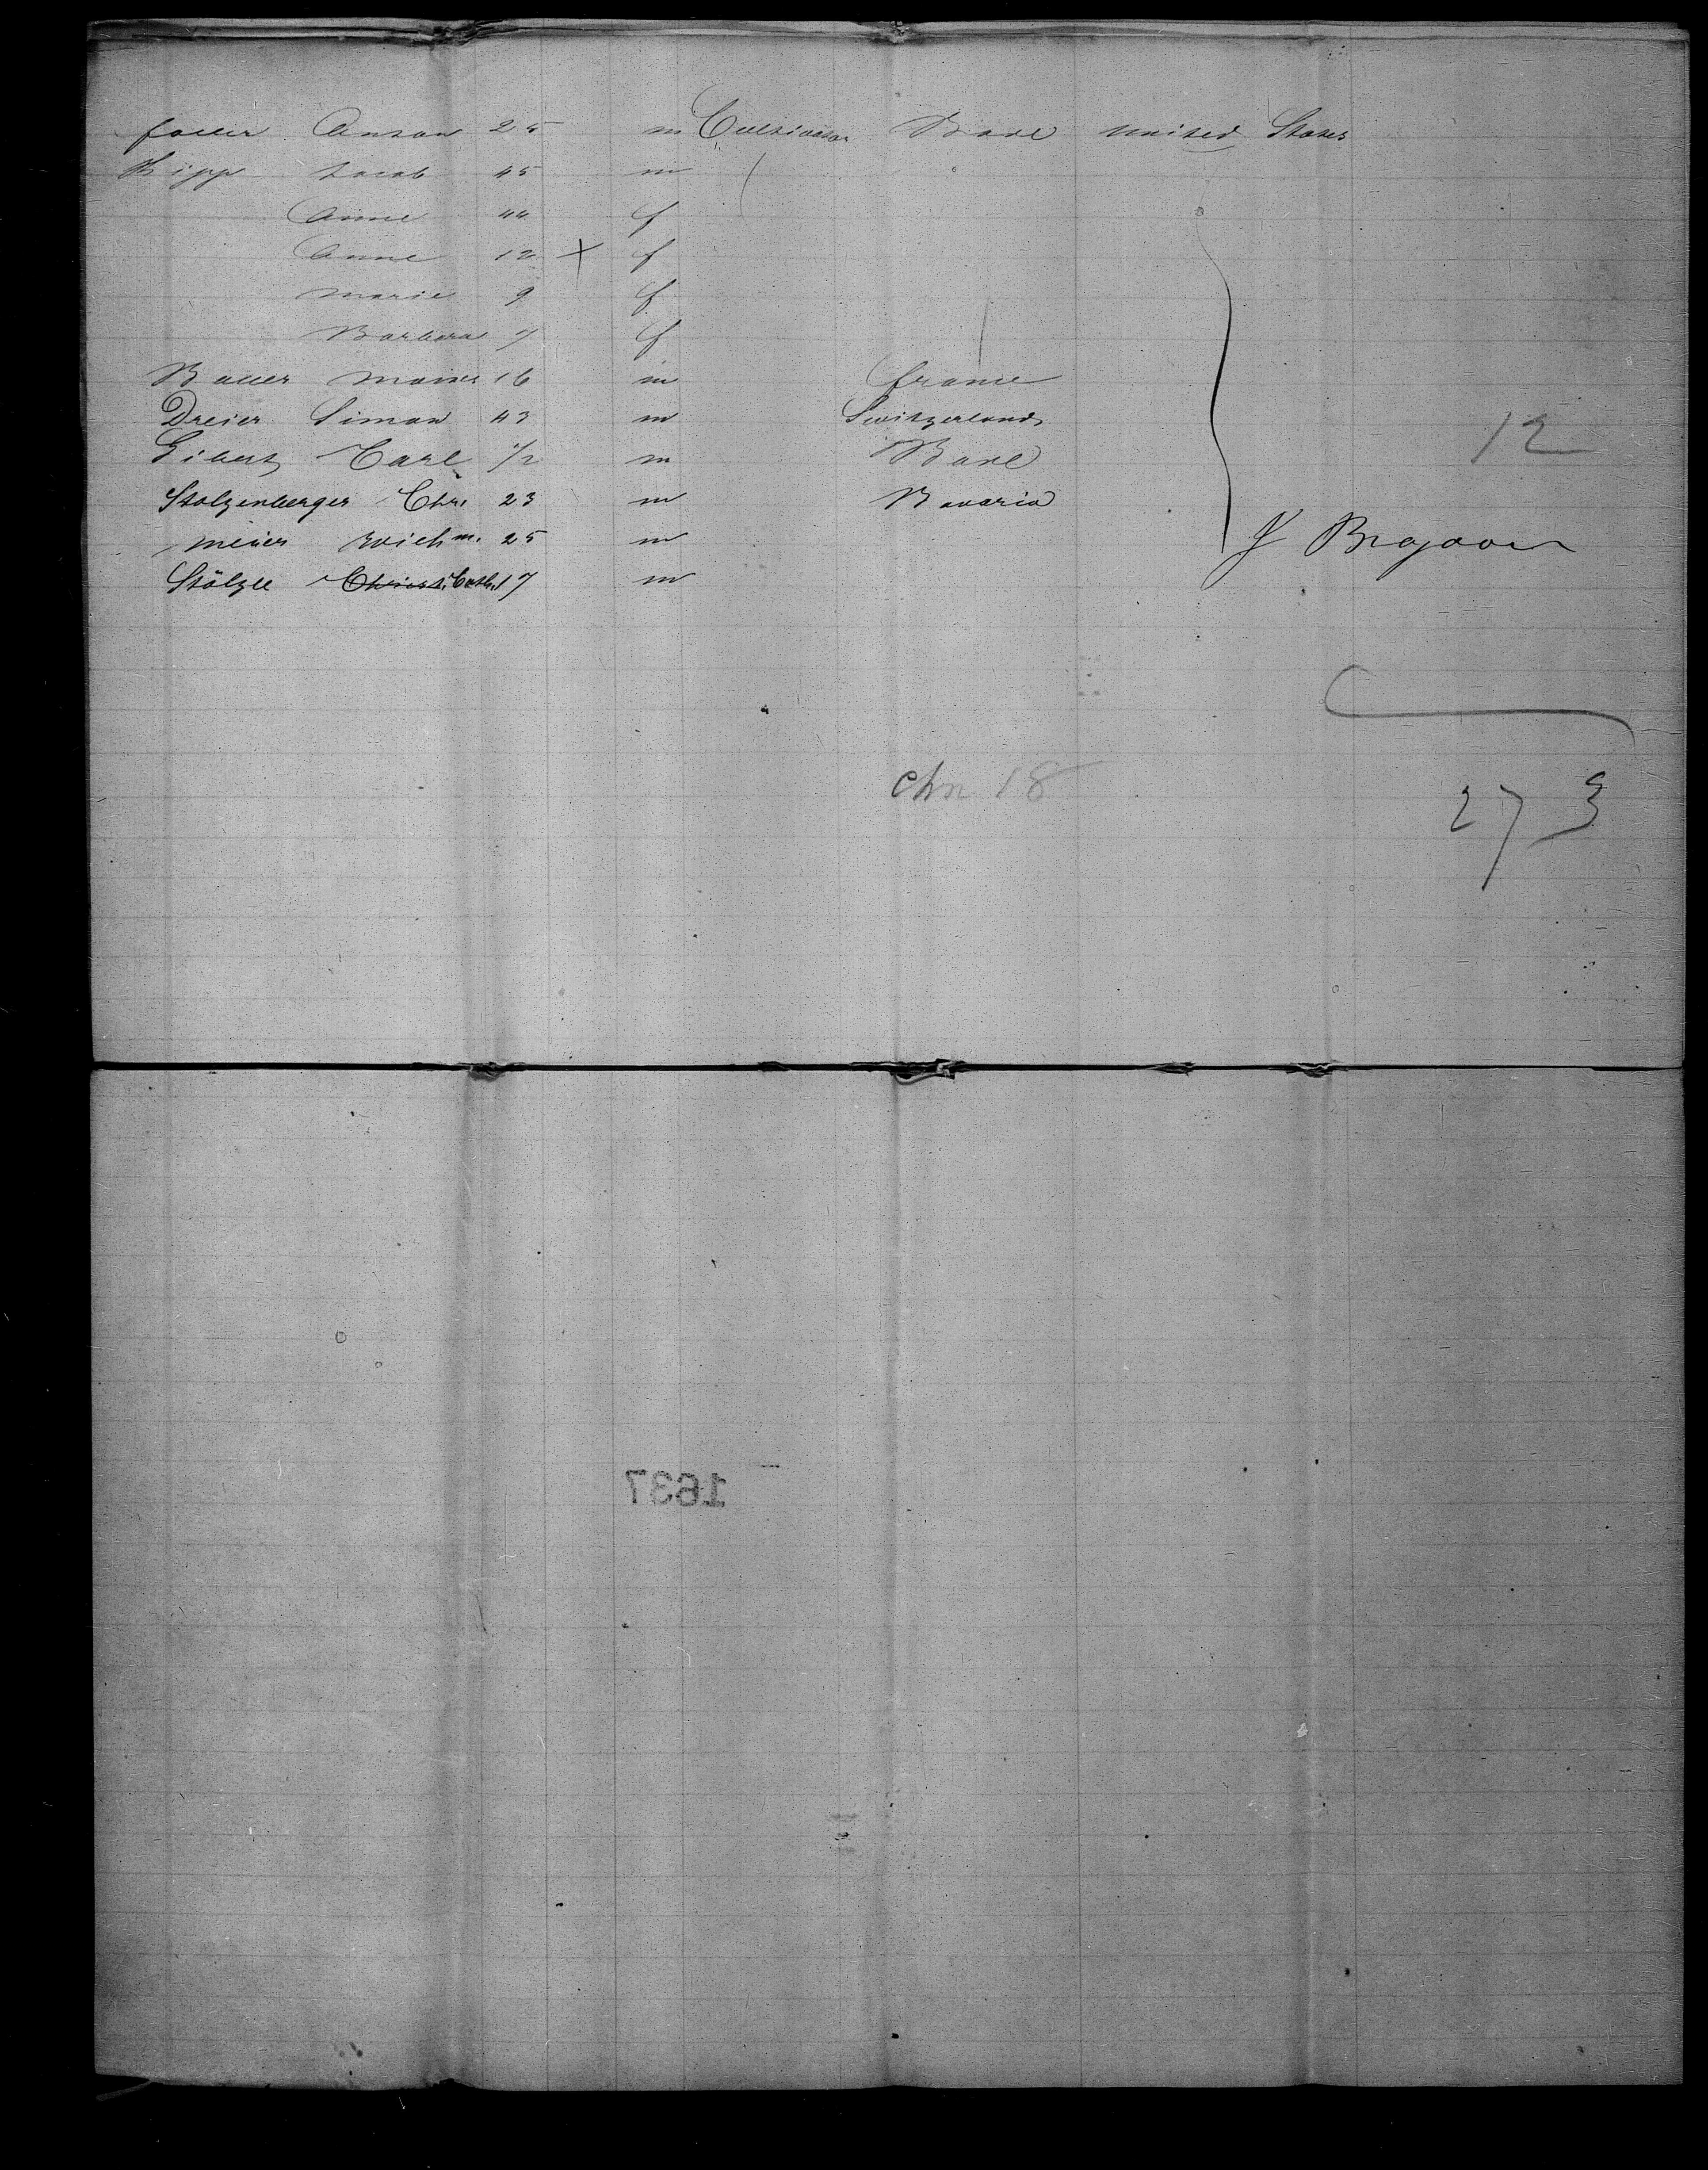 Faller Anton 25 m Cultivator Bade United States
Kipp Jacob 45 m "
Anne 44 f
Anne 12 X f
Marie 9 f
Barbara 7 f
Bauer 16 m France
Dreier Simon 43 m Switzerland 12
Carl 1/2 m Bade
Stolzenberger Chr. 23 m Bavaria
Meier 25 m J
Stölzle Christ. Cath. 17 m
chn 18
273
1637